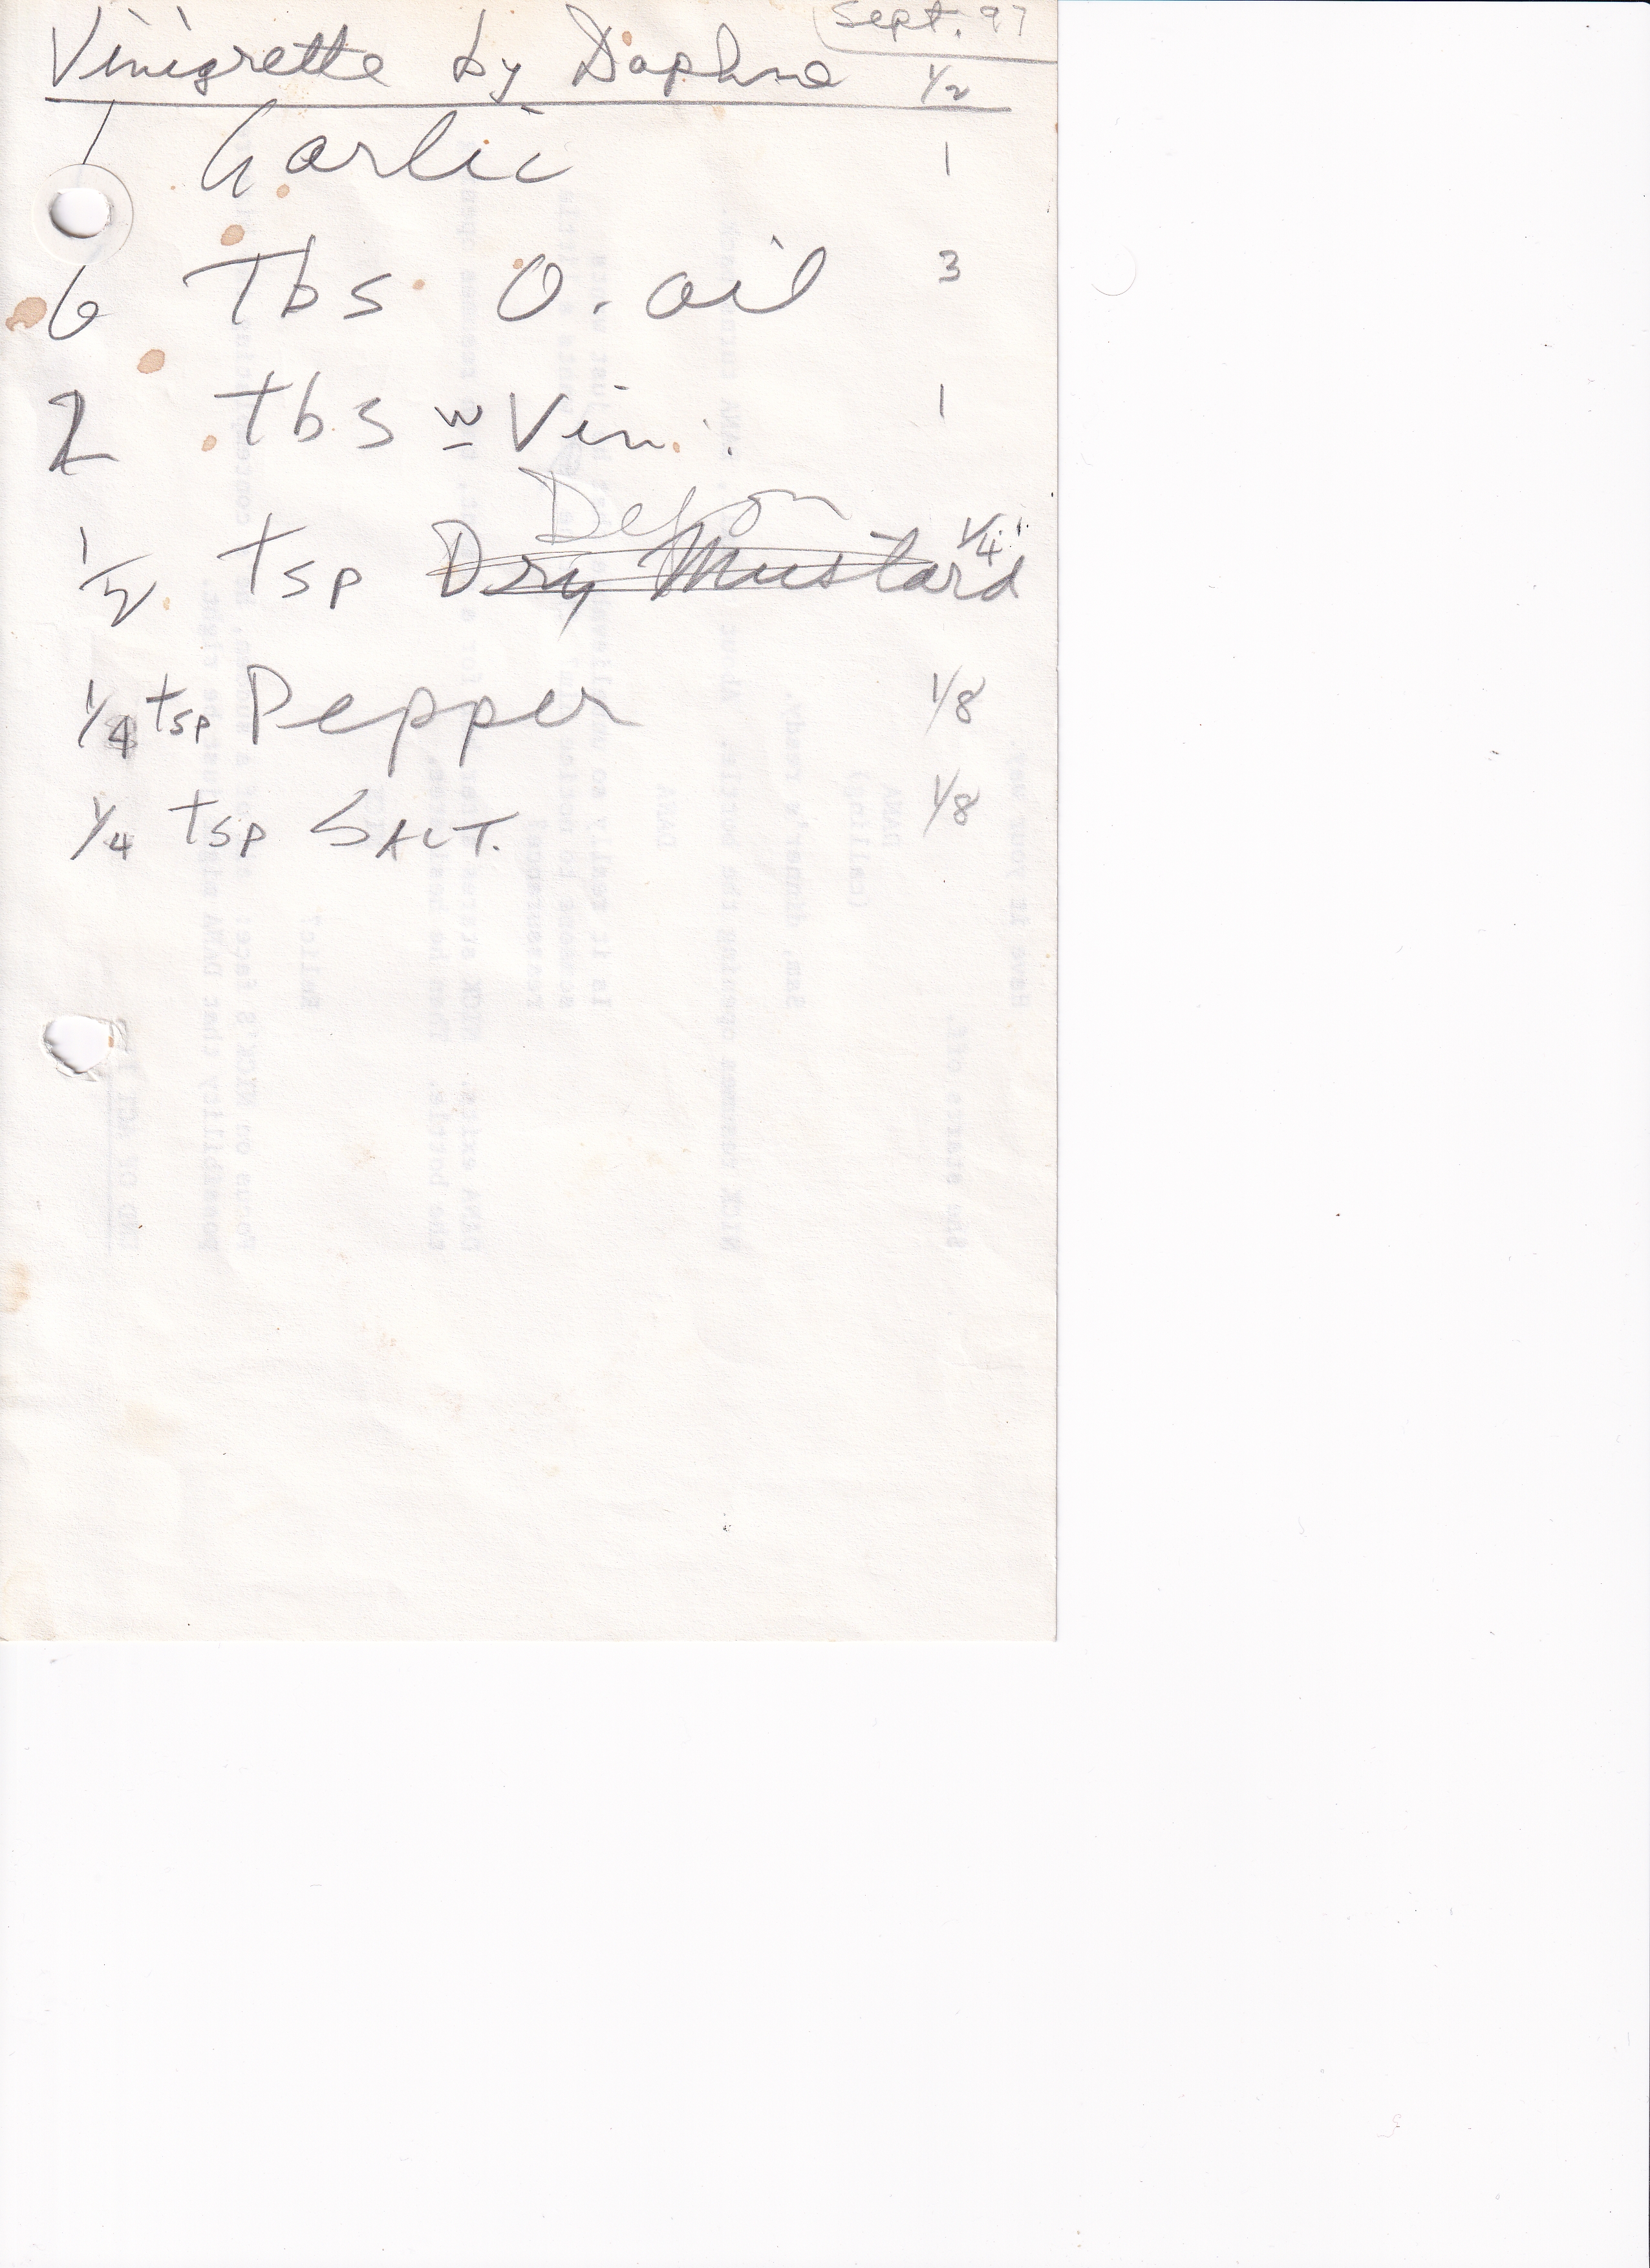 Sept. 97
Vinigrette by Daphne 1/2
1 Garlic 1
6 Tbs O. oil 3
2 tbs w Vin. 1
Dejon
1/2 tsp Dry Mustard 1/4
1/4 tsp Pepper 1/8
1/4 tsp SALT. 1/8